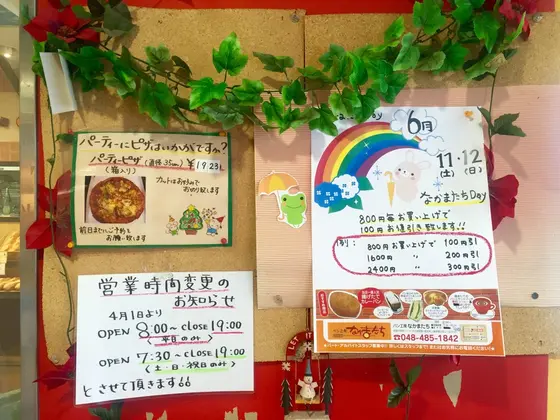 パーティーにピザはいかがですか?
パーティーピザ (直径35cm) ¥1923
(箱入り)
カットはお好みで
お切り致します
前日までにご予約を
お願い致します
営業時間変更の
お知らせ
4月1日より
OPEN 8:00~CLOSE 19:00
(平日のみ)
OPEN 7:30~CLOSE 19:00
(土・日・祝日のみ)
とさせて頂きます
Day
6月
11・12
(土) (日)
なかまたちDay
800円毎お買い上げで
100円お値引き致します!!
例:800円お買い上げで 100円引
1600円 〃 200円引
2400円 〃 300円引
揚げたて
カレーパン
パン工房 なかまたち
☎048-485-1842
LET IT